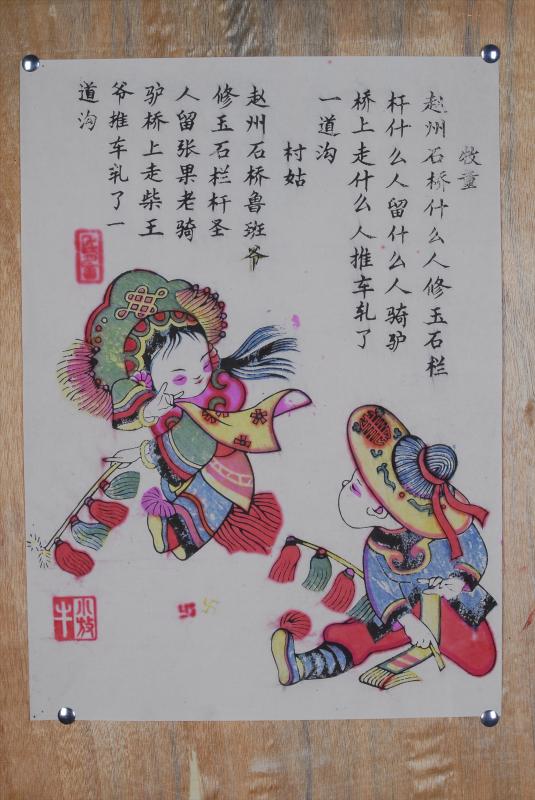 牧童
赵州石桥什么人修玉石栏
杆什么人留什么人骑驴
桥上走什么人推车轧了
一道沟
村姑
赵州石桥鲁班爷
修玉石栏杆圣
人留张果老骑
驴桥上走柴王
爷推车轧了一
道沟
小放
牛